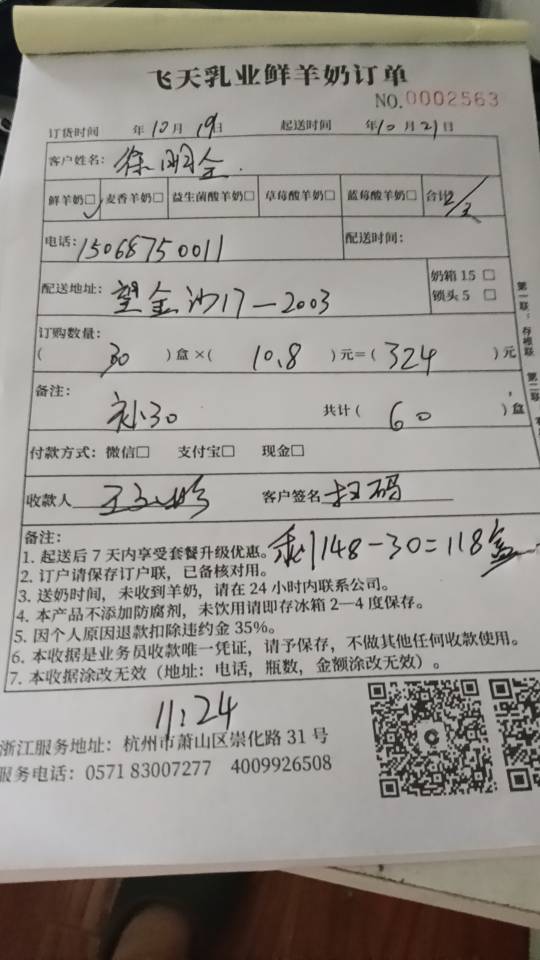 飞天乳业鲜羊奶订单
NO.0002563
订货时间 年10月19日 起送时间 年10月21日
客户姓名：徐明全
鲜羊奶☐✓ 麦香羊奶☐ 益生菌酸羊奶☐ 草莓酸羊奶☐ 蓝莓酸羊奶☐ 合计2/3
电话：15068750011 配送时间：
配送地址：望金沙17-2003
奶箱 15 ☐
锁头 5 ☐
订购数量：
（ 30 ）盒×（ 10.8 ）元=（ 324 ）元
备注：
补30 共计（ 60 ）盒
付款方式：微信☐ 支付宝☐ 现金☐
收款人 王 客户签名 扫码
备注：
剩148-30=118盒
1. 起送后 7 天内享受套餐升级优惠。
2. 订户请保存订户联，已备核对用。
3. 送奶时间，未收到羊奶，请在 24 小时内联系公司。
4. 本产品不添加防腐剂，未饮用请即存冰箱 2—4 度保存。
5. 因个人原因退款扣除违约金 35%。
6. 本收据是业务员收款唯一凭证，请予保存，不做其他任何收款使用。
7. 本收据涂改无效（地址：电话，瓶数，金额涂改无效）。
11:24
浙江服务地址：杭州市萧山区崇化路 31 号
服务电话：0571 83007277 4009926508
第一联：存根联
第二联